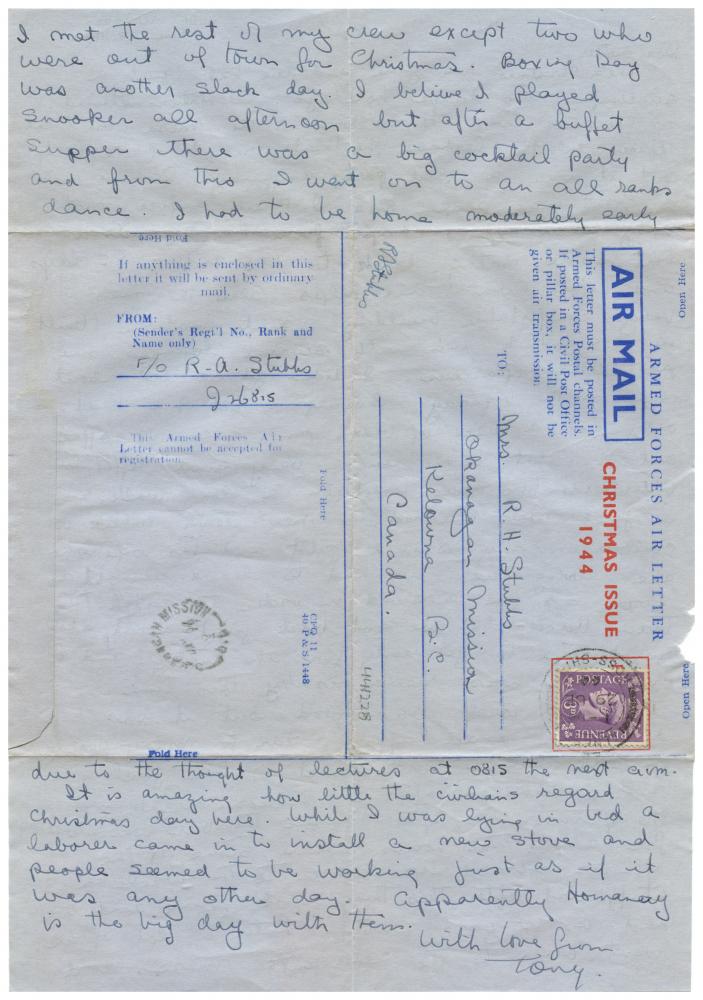 I met the rest of my crew except two who
were out of town for Christmas. Boxing Day
was another slack day. I believe I played
Snooker all afternoon but after a buffet
supper there was a big cocktail party
and from this I went on to an all ranks
dance. I had to be home moderately early
Fold Here
If anything is enclosed in this
letter it will be sent by ordinary
mail.
FROM:
(Sender's Regt'l No., Rank and
Name only)
F/O R-A. Stubbs
J26815
This Armed Forces Air
Letter cannot be accepted for
registration.
Fold Here
CFQ 11
40 P & S 1448
OKANAGAN MISSION
Fold Here
Open Here
ARMED FORCES AIR LETTER
AIR MAIL
CHRISTMAS ISSUE
1944
This letter must be posted in
Armed Forces Postal channels.
If posted in a Civil Post Office
or pillar box, it will not be
given air transmission.
RAStubbs
TO:
Mrs. R. H. Stubbs
Okanagan Mission
Kelowna B.C.
Canada.
441228
POSTAGE
3D
REVENUE
Open Here
due to the thought of lectures at 0815 the next a.m.
It is amazing how little the civilians regard
Christmas day here. Whil I was lying in bed a
laborer came in to install a new stove and
people seemed to be working just as if it
was any other day. Apparently Homanay
is the big day with them.
With love from
Tony.